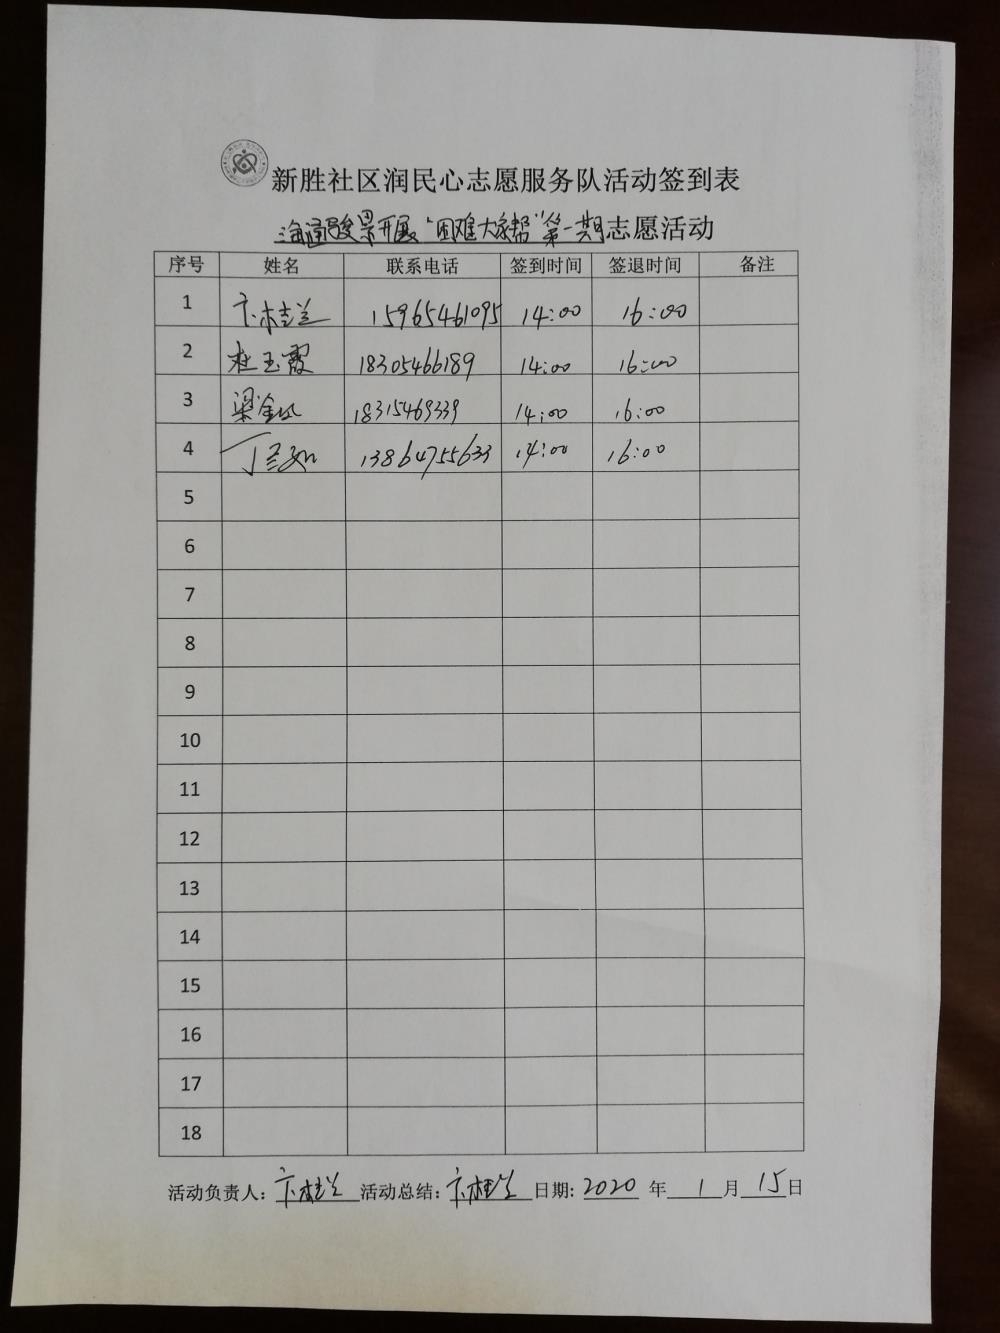 新胜社区润民心志愿服务队活动签到表
海通骏景开展“困难大家帮”第一期志愿活动
序号 姓名 联系电话 签到时间 签退时间 备注
1 卞桂兰 15965461095 14:00 16:00
2 杜玉霞 18305466189 14:00 16:00
3 梁金 18315469339 14:00 16:00
4 丁 13864755633 14:00 16:00
5
6
7
8
9
10
11
12
13
14
15
16
17
18
活动负责人: 卞桂兰 活动总结: 卞桂兰 日期: 2020 年 1 月 15 日